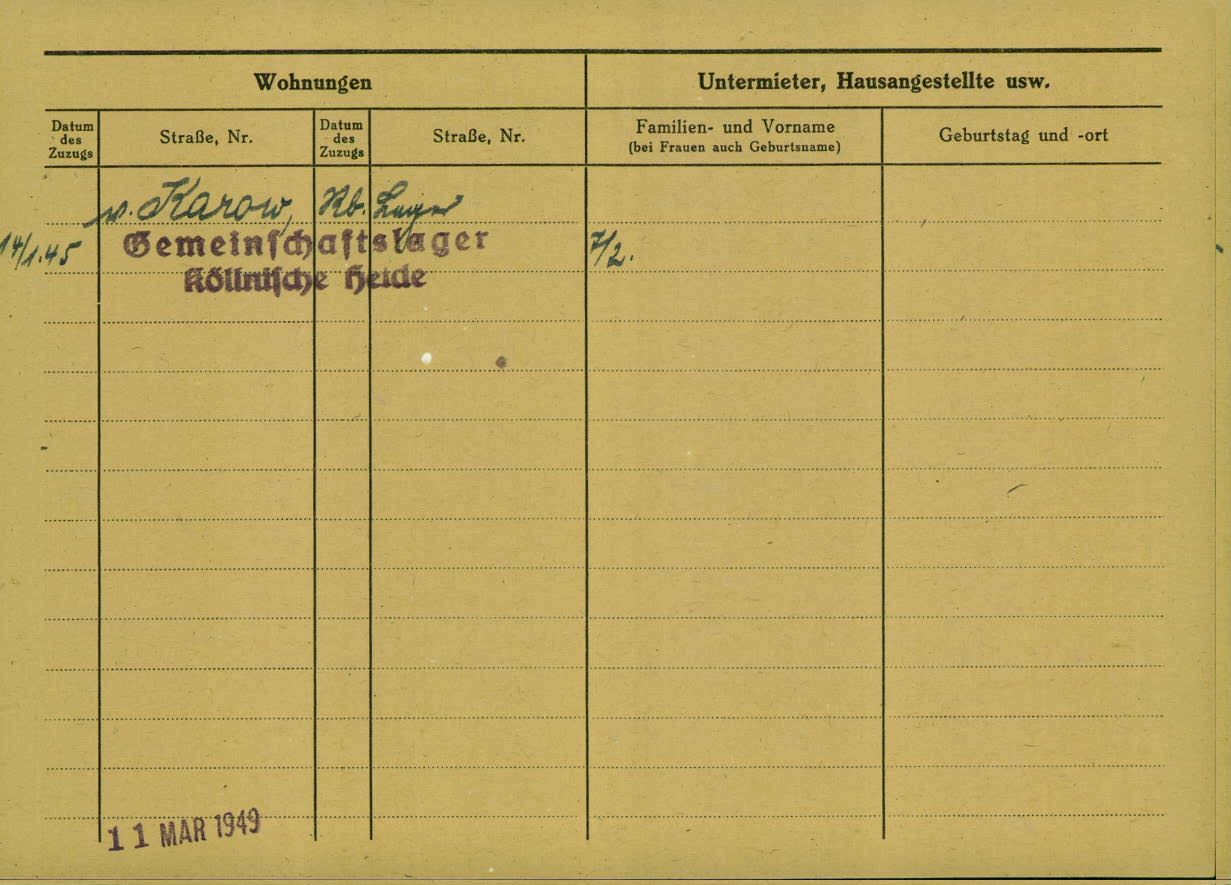 Wohnungen
Untermieter, Hausangestellte usw.
Datum des Zuzugs
Straße, Nr.
Datum des Zuzugs
Straße, Nr.
Familien- und Vorname
(bei Frauen auch Geburtsname)
Geburtstag und -ort
v. Karow, Rb. Lager
14/1.45 Gemeinschaftslager 7/2.
Köllnische Heide
11 MAR 1949